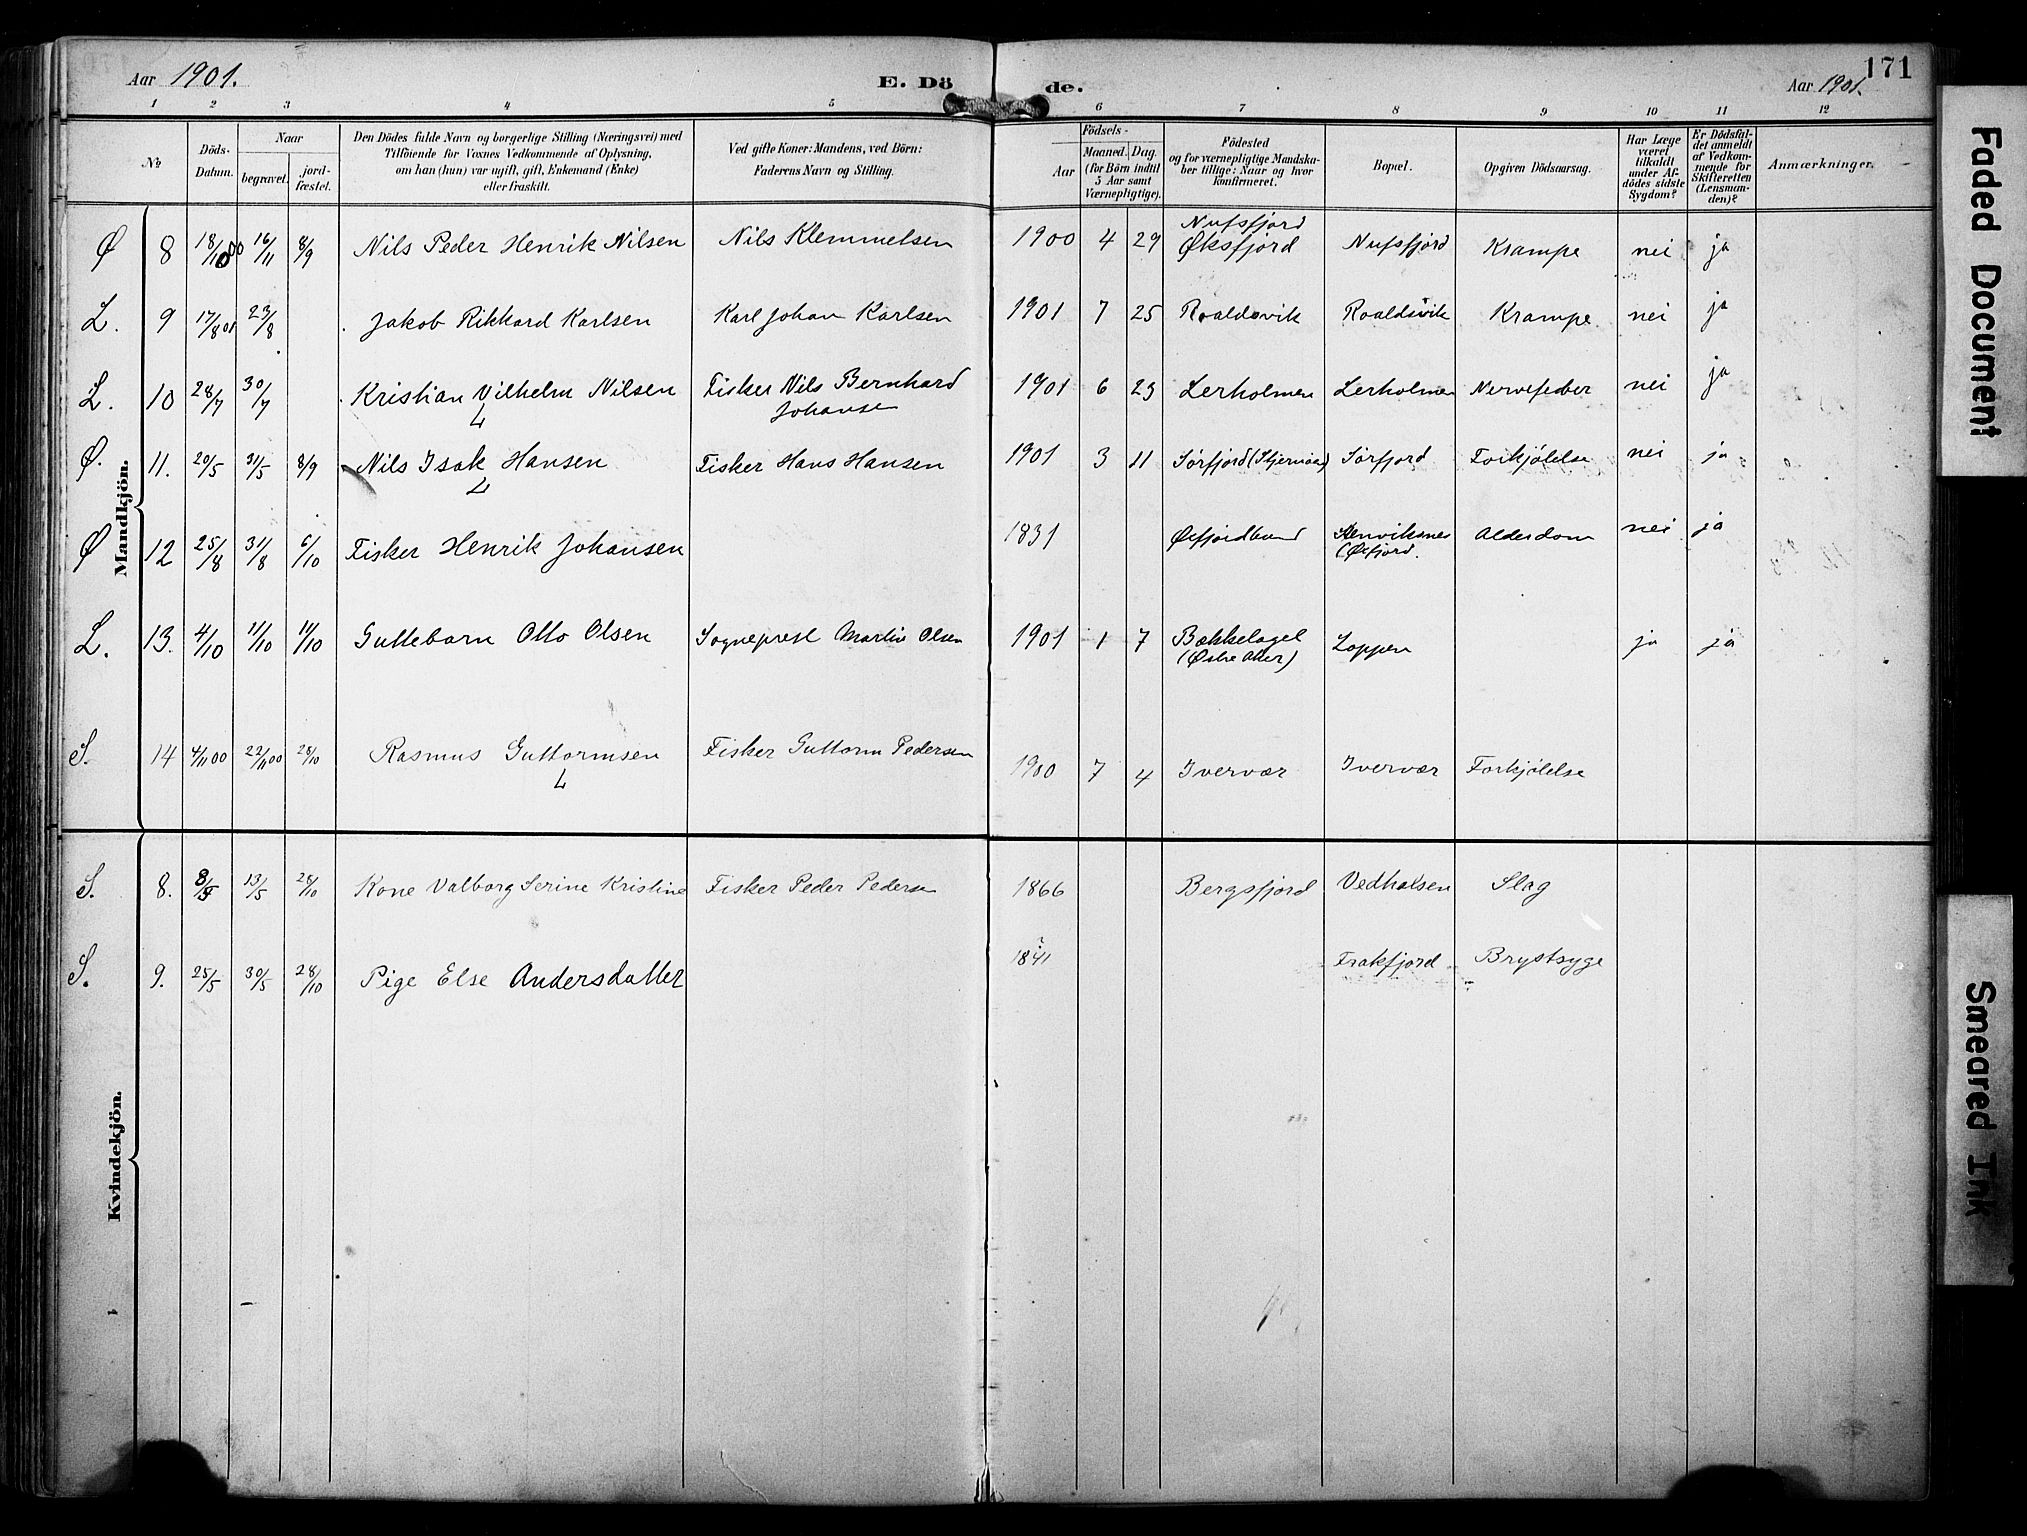 Aar 1901. E. Dö de. Aar 1901. 171
1 2 3 4 5 6 7 8 9 10 11 12
№
Döds-Datum.
Naar
begravet.
jord-fæstet.
Den Dödes fulde Navn og borgerlige Stilling (Næringsvei) med
Tilföiende for Voxnes Vedkommende af Oplysning,
om han (hun) var ugift, gift, Enkemand (Enke)
eller fraskilt.
Ved gifte Koner: Mandens, ved Börn:
Faderens Navn og Stilling.
Födsels-
Aar
Maaned. Dag.
(for Börn indtil
5 Aar samt
Værnepligtige).
Födested
og for værnepligtige Mandska-
ber tillige: Naar og hvor
konfirmeret.
Bopæl.
Opgiven Dödsaarsag.
Har Læge
været
tilkaldt
under Af-
dödes sidste
Sygdom?
Er Dödsfal-
det anmeldt
af Vedkom-
mende for
Skifteretten
(Lensman-
den)?
Anmærkninger.
Mandkjön.
Ø 8 18/10 00 16/11 8/9 Nils Peder Henrik Nilsen Nils Klemmetsen 1900 4 29 Nufsfjord Øksfjord Nufsfjord Krampe nei ja
L. 9 17/8 01 23/8 Jakob Rikkard Karlsen Karl Johan Karlsen 1901 7 25 Roaldsvik Roaldsvik Krampe nei ja
L. 10 28/7 30/7 Kristian Vilhelm Nilsen Fisker Nils Bernhard 1901 6 23 Lerholmen Lerholmen Nervefeber nei ja
L Johansen
Ø. 11. 20/5 31/5 8/9 Nils Isak Hansen Fisker Hans Hansen 1901 3 11 Sørfjord (Stjernøa) Sørfjord Forkjølelse nei ja
L
Ø 12 25/8 31/8 6/10 Fisker Henrik Johansen 1831 Øxfjordbund Alderdom nei ja
(Øxfjord.
L. 13. 4/10 11/10 11/10 Guttebarn Otto Olsen Sogneprest Martin Olsen 1901 1 7 Bækkelaget Loppen ja ja
(Østre Aker)
S. 14 4/11 00 22/11 00 28/10 Rasmus Guttormsen Fisker Guttorm Pedersen 1900 7 4 Ivervær Ivervær Forkjølelse
L
Kvindekjön.
S. 8. 8/5 13/5 28/10 Kone Valborg Serine Kristine Fisker Peder Pedersen 1866 Bergsfjord Slag
S. 9. 25/5 30/5 28/10 Pige Else Andersdatter 1841 ? Frakfjord Brystsyge
Faded Document
Smeared Ink